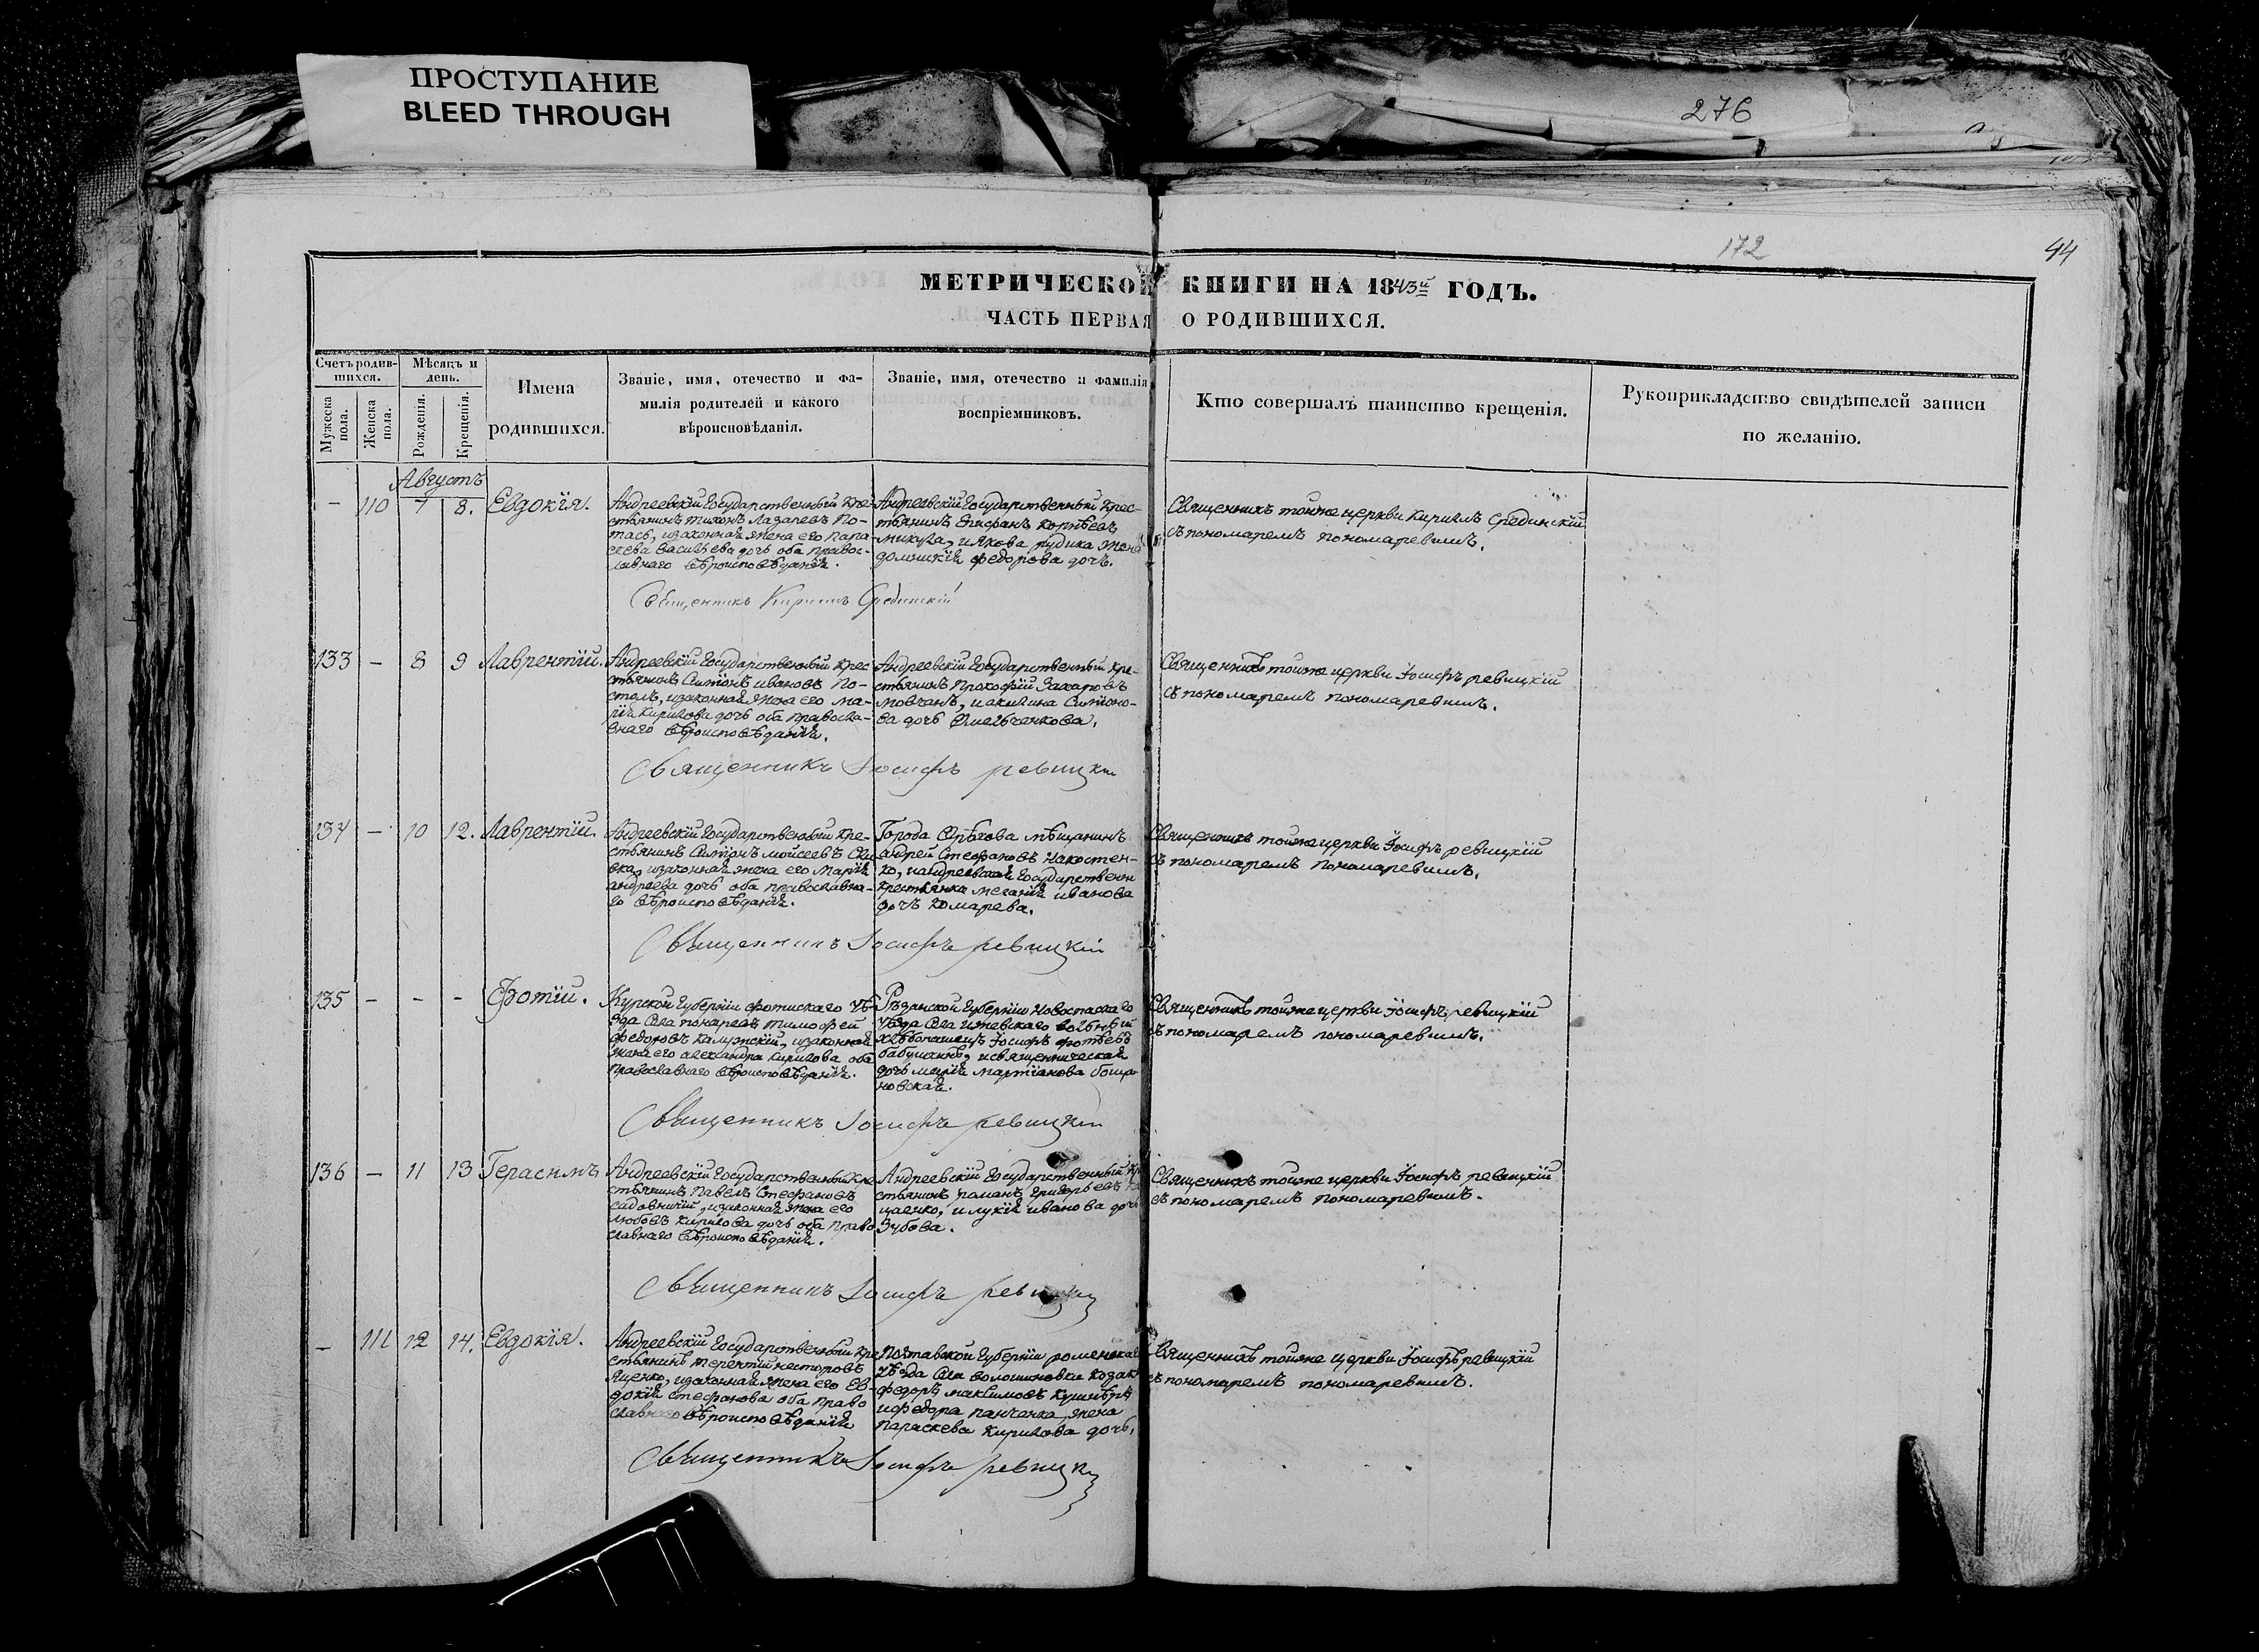 ПРОСТУПАНИЕ
BLEED THROUGH
276
172
44
МЕТРИЧЕСКОЙ КНИГИ НА 1843й ГОДЪ.
ЧАСТЬ ПЕРВАЯ О РОДИВШИХСЯ.
Счетъ родив-
шихся.
Мужеска
пола.
Женска
пола.
Мѣсяцъ и
день.
Рожденія.
Крещенія.
Имена
родившихся.
Званіе, имя, отечество и фа-
милія родителей и какого
вѣроисповѣданія.
Званіе, имя, отечество и фамилія
воспріемниковъ.
Кто совершалъ таинство крещенія.
Рукоприкладство свидѣтелей записи
по желанію.
Августъ
– 110 7 8. Евдокія.
Андреевскій Государственный кре-
стьянинъ тихонъ Лазаревъ По-
тась, изаконная жена его пара-
скева васильева дочь оба правос-
лавнаго вѣроисповѣданія.
Андреевскій Государственный крес-
тьянинъ Епифанъ корнѣевъ
микула, и якова рудика жена
домникія федорова дочь.
Священникъ тойже церкви кирилъ Срединскій
съ пономаремъ пономаревимъ.
Священникъ Кирилъ Срединскій
133 – 8 9 Лаврентій.
Андреевскій Государственный крес
стьянинъ Симіонъ ивановъ По-
столъ, изаконная жена его ма-
рія кирилова дочь оба правосла-
внаго вѣроисповѣданія.
Андреевскій Государственный кре-
стьянинъ прокофій Захаровъ
мовчанъ, и акилина Симіоно-
ва дочь Омельченкова.
Священникъ тойже церкви Іосифъ ревицкій
съ пономаремъ пономаревимъ.
Священникъ Іосифъ ревицкій
134 – 10 12. Лаврентій.
Андреевскій Государственный кре-
стьянинъ Симіонъ мойсеевъ
вка, изаконная жена его марія
андреева дочь оба православна-
го вѣроисповѣданія.
Города Орѣхова мѣщанинъ
андрей Стефановъ Накостен-
ко, иандреевская Государственн
крестьянка меланія иванова
дочь комарева.
Священникъ тойже церкви Іосифъ ревицкій
съ пономаремъ пономаревимъ.
Священникъ Іосифъ ревицкій
135 – - - Фотій.
Курской Губерніи уѣ-
зда Села тимофей
федоровъ калужскій, изаконная
жена его александра кирилова оба
православнаго вѣроисповѣданія.
Рязанской Губерніи
уѣзда Села ижевскаго вольный
хлѣбопашецъ Іосифъ фотѣевъ
бабушкинъ, исвященническая
дочь марія мартіанова
новская.
Священникъ тойже церкви Іосифъ ревицкій
съ пономаремъ пономаревимъ.
Священникъ Іосифъ ревицкій
136 – 11 13 Герасимъ
Андреевскій Государственный кре
стьянинъ павелъ Стефановъ
садовничій, изаконная жена его
любовь кирилова дочь оба право
славнаго вѣроисповѣданія.
Андреевскій Государственный кре
стьянинъ романъ григорьевъ
цаенко, и лукія иванова дочь
Зубова.
Священникъ тойже церкви Іосифъ ревицкій
съ пономаремъ пономаревимъ.
Священникъ Іосифъ ревицкій
– 111 12 14. Евдокія.
Андреевскій Государственный кре
стьянинъ терентій несторовъ
яценко, изаконная жена его Ев-
докія стефанова оба право
славнаго вѣроисповѣданія
Полтавской Губерніи роменскаго
уѣзда Села волошиновки козакъ
федоръ максимовъ кушнѣръ
ифедора панченка жена
параскева кирилова дочь,
Священникъ тойже церкви Іосифъ ревицкій
съ пономаремъ пономаревимъ.
Священникъ Іосифъ ревицкій